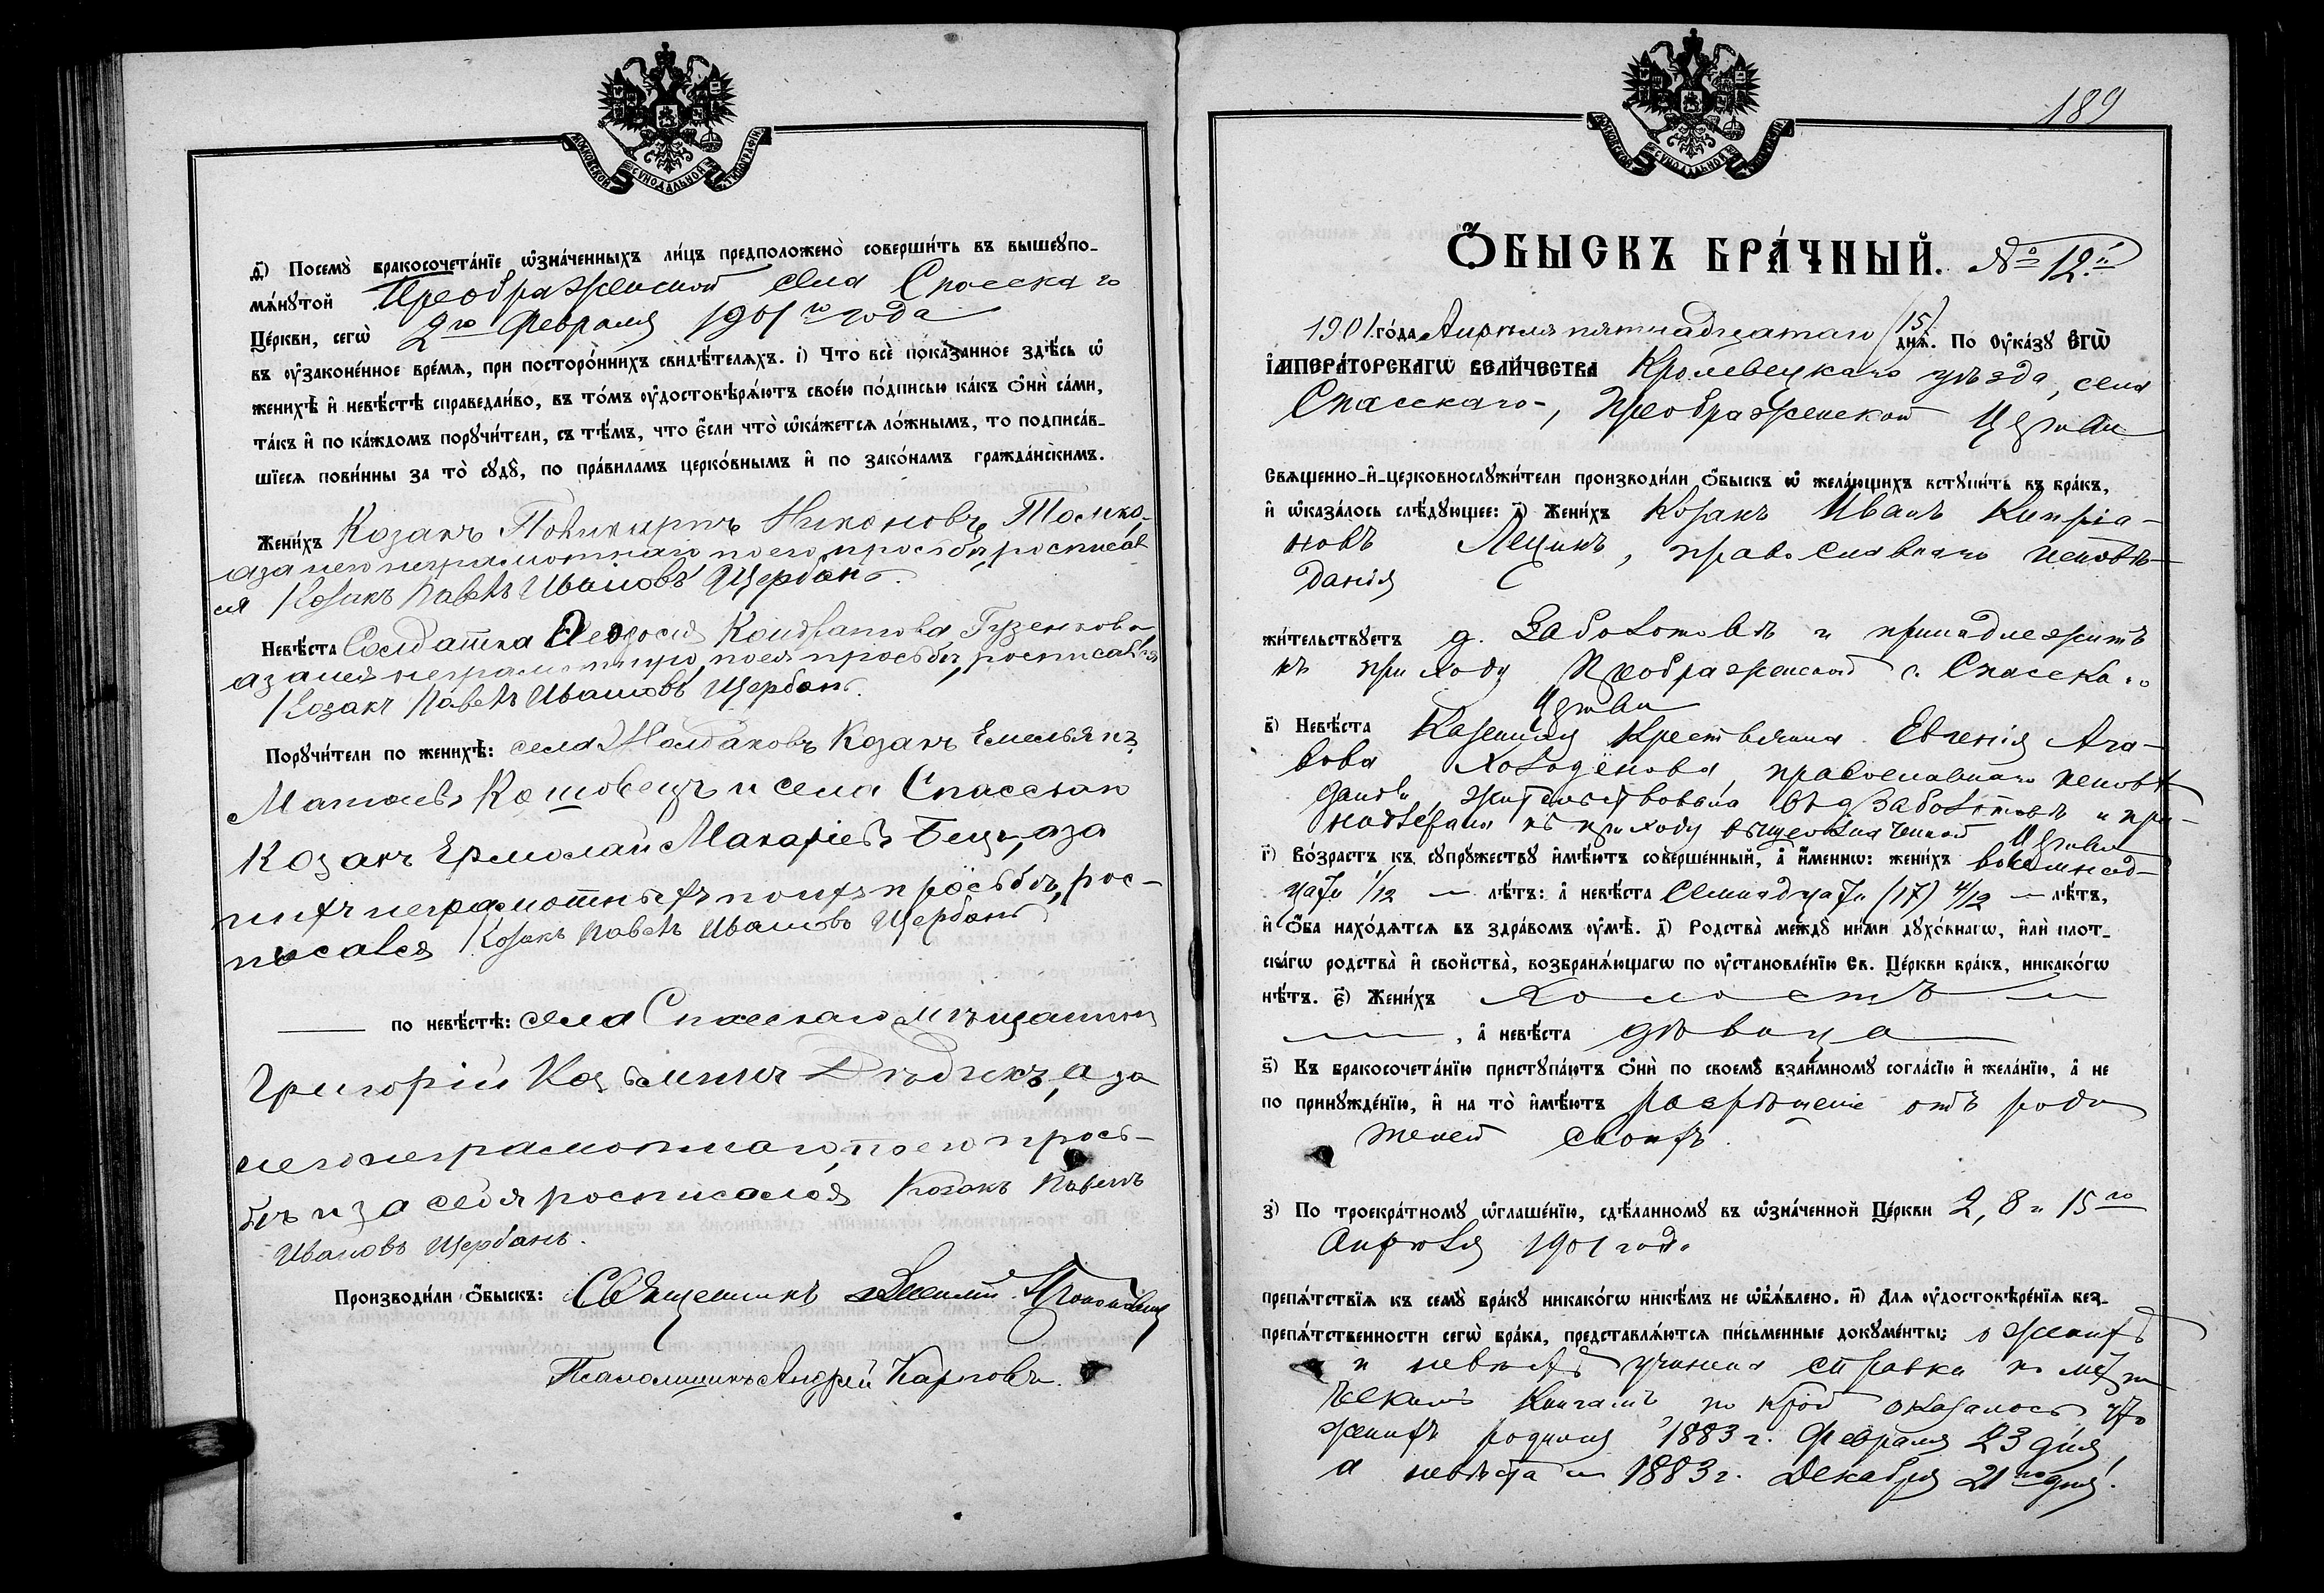 МОСКОВСКОЙ СѴНОДАЛЬНОЙ ТИПОГРАФІИ
д҃) Посемꙋ̀ бракосочета́нїе ѡ҆зна́ченныхъ ли́цъ предположено̀ соверши́ть въ вышеꙋпо-
мѧ́нꙋтой Преображенской села Спасскаго
Це́ркви, сегѡ̀ 2го Февраля 1901го года
въ ᲂу҆законе́нное вре́мѧ, при посторо́ннихъ свидѣ́телѧхъ. і҃) Что всѐ пока́занное здѣ́сь ѡ҆
женихѣ̀ и҆ невѣ́стѣ справедли́во, въ то́мъ ᲂу҆достовѣрѧ́ютъ свое́ю по́дписью ка́къ ѻ҆нѝ са́ми,
та́къ и҆ по ка́ждомъ порꙋчи́тели, съ тѣ́мъ, что є҆́сли что̀ ѡ҆ка́жетсѧ ло́жнымъ, то подписа́в-
шїесѧ пови́нны за то̀ сꙋдꙋ̀, по пра́виламъ церко́внымъ и҆ по зако́намъ гражда́нскимъ.
Жени́хъ Козакъ Никоновъ
а за него неграмотнаго по его просьбѣ, росписал
ся Козакъ Павелъ Ивановъ Щербань.
Невѣ́ста Солдатка Ѳеодосія Кондратова Гузенкова
а за нея неграмотную, по ея просьбѣ, росписался
Козакъ Павелъ Ивановъ Щербань.
Порꙋчи́тели по женихѣ̀: села Козакъ Емельянъ
Кошовецъ и села Спасскаго
Козакъ Ермолай Макаріевъ а за
нихъ неграмотныхъ по ихъ просьбѣ, рос-
писался Козакъ Павелъ Ивановъ Щербань
по невѣ́стѣ: села Спасскаго мѣщанинъ
Григорій Козьминъ а за
него неграмотнаго, по его прось-
бѣ и за себя росписался Козакъ Павелъ
Ивановъ Щербань.
Производи́ли ѻ҆́быскъ: Священникъ
Псаломщикъ Андрей Карповъ.
189
МОСКОВСКОЙ СѴНОДАЛЬНОЙ ТИПОГРАФІИ
Ѻ҆́БЫСКЪ БРА́ЧНЫЙ. № 12й
1901 го́да Апрѣля пятнадцатаго (15) днѧ̀. По ᲂу҆ка́зꙋ Є҆гѡ̀
І҆мпера́торскагѡ вели́чества Кролевецкаго уѣзда, села
Спасскаго, Преображенской Церкви
свѧщенно-и҆-церковнослꙋжи́тели производи́ли ѻ҆́быскъ ѡ҆ жела́ющихъ встꙋпи́ть въ бра́къ,
и҆ ѡ҆каза́лось слѣ́дꙋющее: а҃) Жени́хъ Козакъ Иванъ Кипріа-
новъ Лецикъ, православнаго исповѣ-
данія
жи́тельствꙋетъ д. Заболотовѣ и принадлежитъ
къ приходу Преображенской с. Спасскаго
Церкви
в҃) Невѣ́ста Казенная Крестьянка Евгенія
Холодёнова, православнаго исповѣ
данія жительствовала въ д. Заболотовѣ и при-
надлежала къ приходу вышеозначенной Церкви
г҃) Во́зрастъ къ сꙋпрꙋ́жествꙋ и҆мѣ́ютъ соверше́нный, а҆ и҆́меннѡ: жени́хъ восемнад-
цать 1/12 — лѣ́тъ: а҆ невѣ́ста Семнадцать (17) 4/12 — лѣ́тъ,
и҆ ѻ҆́ба нахо́дѧтсѧ въ здра́вомъ ᲂу҆мѣ̀. д҃) Родства̀ междꙋ̀ ни́ми дꙋхо́внагѡ, и҆лѝ плот-
ска́гѡ родства̀ и҆ сво́йства̀, возбранѧ́ющагѡ по ᲂу҆становле́нїю Св. Це́ркви бра́къ, никако́гѡ
нѣ́тъ. є҃) Жени́хъ Холостъ
, а҆ невѣ́ста дѣвица
ѕ҃) Къ бракосочета́нїю пристꙋпа́ютъ ѻ҆нѝ по своемꙋ̀ взаи́мномꙋ согла́сїю и҆ жела́нїю, а҆ не
по принꙋжде́нїю, и҆ на то̀ и҆мѣ́ютъ разрѣшеніе отъ роди
телей своихъ.
з҃) По троекра́тномꙋ ѡ҆глаше́нїю, сдѣ́ланномꙋ въ ѡ҆зна́ченной Це́ркви 2, 8 и 15го
Апрѣля 1901 года
препѧ́тствїѧ къ семꙋ̀ бра́кꙋ никако́гѡ никѣ́мъ не ѡ҆б̾ѧ́влено. и҃) Для ᲂу҆достовѣре́нїѧ без-
препѧ́тственности сегѡ̀ бра́ка, представлѧ́ютсѧ пи́сьменные докꙋме́нты: о женихѣ
и невѣстѣ учинена справка по метри
ческимъ книгамъ по крой оказалось, что
женихъ родился 1883 г. Февраля 23 дня,
а невѣста — 1883 г. Декабря 21го дня.